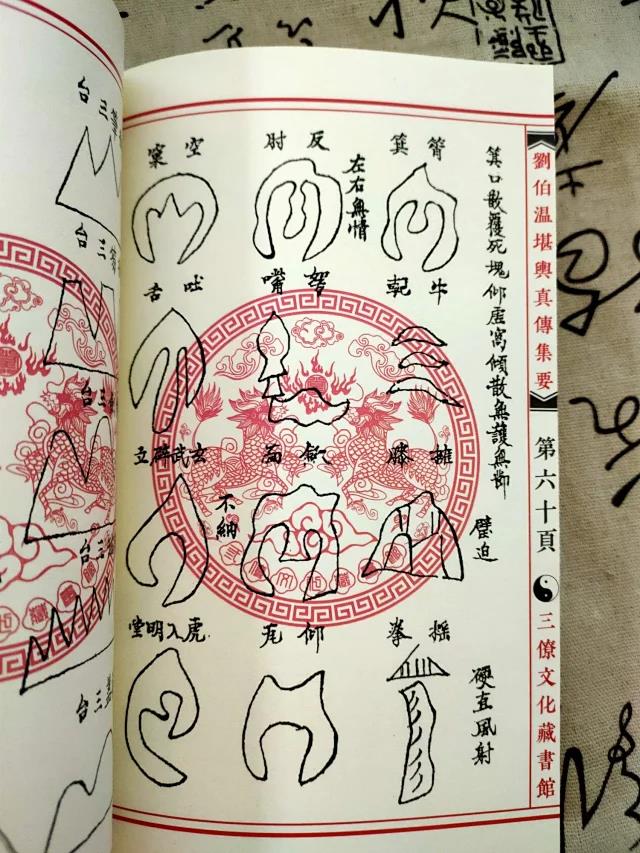 劉伯溫堪輿真傳集要
第六十頁
三僚文化藏書館
箕口散覆死塊仰虛窩傾散無護無
筲箕
反肘
左右無情
空窠
牛
嘴
吐舌
擁膝
壁迫
面
不納
玄武辟立
搖拳
硬直風射
仰
虎入明堂
三台
三台
三台
三台
三台